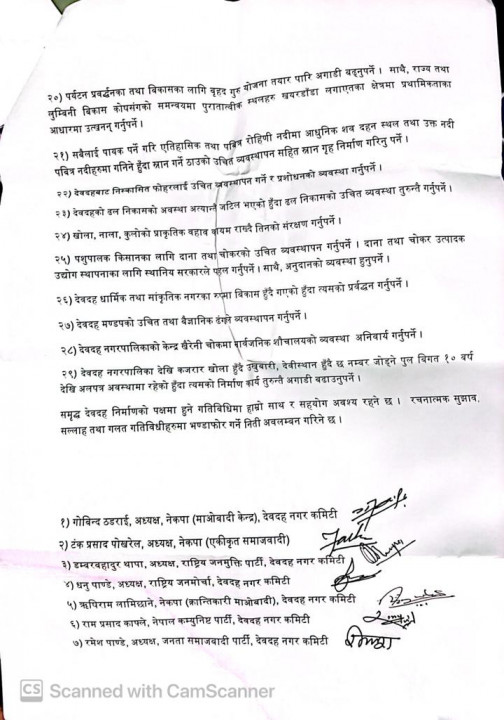 २०) पर्यटन प्रवर्द्धनका तथा बिकासका लागि बृहद गुरु योजना तयार पारि अगाडी बढ्नुपर्ने। साथै, राज्य तथा
लुम्बिनी बिकास कोषसंगको समन्वयमा पुरातात्वीक स्थलहरु खयरडाँडा लगाएतका क्षेत्रमा प्राथमिकताका
आधारमा उत्खनन् गर्नुपर्ने।
२१) सबैलाई पावक पर्ने गरि एतिहासिक तथा पबित्र रोहिणी नदीमा आधुनिक शव दहन स्थल तथा उक्त नदी
पबित्र नदीहरुमा गनिने हुँदा स्नान गर्ने ठाउको उचित ब्यवस्थापन सहित स्नान गृह निर्माण गरिनु पर्ने।
२२) देवदहबाट निस्कासित फोहरलाई उचित ब्यवस्थापन गर्ने र प्रशोधनको ब्यवस्था गर्नुपर्ने।
२३) देवदहको ढल निकासको अवस्था अत्यान्तै जटिल भएको हुँदा ढल निकासको उचित ब्यवस्था तुरुन्तै गर्नुपर्ने।
२४) खोला, नाला, कुलोको प्राकृतिक वहाव कायम राख्दै तिनको संरक्षण गर्नुपर्ने।
२५) पशुपालक किसानका लागि दाना तथा चोकरको उचित ब्यवस्थापन गर्नुपर्ने। दाना तथा चोकर उत्पादक
उद्योग स्थापनाका लागि स्थानिय सरकारले पहल गर्नुपर्ने। साथै, अनुदानको ब्यवस्था हुनुपर्ने।
२६) देवदह धार्मिक तथा सांकृतिक नगरका रुपमा बिकास हुँदै गएको हुँदा त्यसको प्रर्वद्धन गर्नुपर्ने।
२७) देवदह मण्डपको उचित तथा बैज्ञानिक ढंगले ब्यवस्थापन गर्नुपर्ने।
२८) देवदह नगरपालिकाको केन्द्र खैरेनी चोकमा सार्वजनिक शौचालयको ब्यवस्था अनिवार्य गर्नुपर्ने।
२९) देवदह नगरपालिका देखि कजरार खोला हुँदै उखुबारी, देवीस्थान हुँदै छ नम्बर जोड्ने पुल बिगत १० वर्ष
देखि अलपत्र अवस्थामा रहेको हुँदा त्यसको निर्माण कार्य तुरुन्तै अगाडी बढाउनुपर्ने।
समृद्ध देवदह निर्माणको पक्षमा हुने गतिबिधिमा हाम्रो साथ र सहयोग अवश्य रहने छ। रचनात्मक सुझाव,
सल्लाह तथा गलत गतिविधीहरुमा भण्डाफोर गर्ने निती अवलम्बन गरिने छ।
१) गोबिन्द ठडराई, अध्यक्ष, नेकपा (माओबादी केन्द्र), देवदह नगर कमिटी
२) टंक प्रसाद पोखरेल, अध्यक्ष, नेकपा (एकीकृत समाजवादी)
३) डम्बरबहादुर थापा, अध्यक्ष, राष्ट्रिय जनमुक्ति पार्टी, देवदह नगर कमिटी
४) धनु पाण्डे, अध्यक्ष, राष्ट्रिय जनमोर्चा, देवदह नगर कमिटी
५) ऋषिराम लामिछाने, नेकपा (क्रान्तिकारी माओबादी), देवदह नगर कमिटी
६) राम प्रसाद काफ्ले, नेपाल कम्युनिष्ट पार्टी, देवदह नगर कमिटी
७) रमेश पाण्डे, अध्यक्ष, जनता समाजबादी पार्टी, देवदह नगर कमिटी
CS Scanned with CamScanner